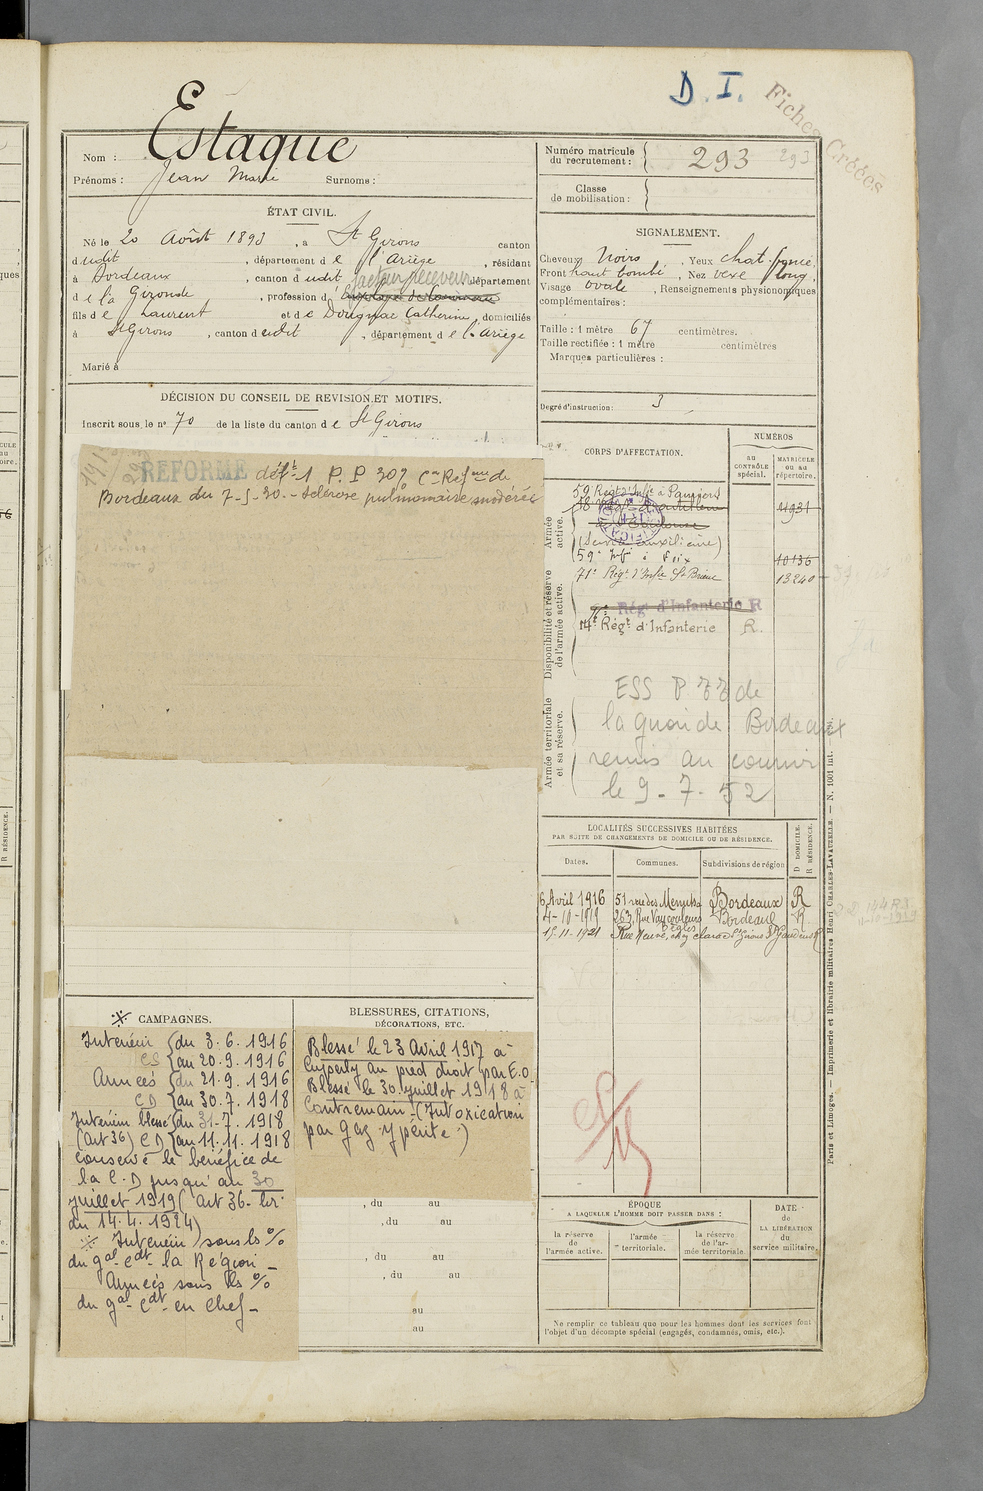 D. I.
Fiches Créées
Estaque
Nom :
Prénoms : Jean Marie Surnoms :
Numéro matricule du recrutement : 293 293
Classe de mobilisation :
ÉTAT CIVIL.
Né le 20 Août 1893, à St Girons canton
dudit, département de l'Ariège, résidant
à Bordeaux, canton dudit facteur receveur département
de la Gironde, profession d
fils de Laurent et de Dougnac Catherine, domiciliés
à St Girons, canton dudit, département de l'Ariège
Marié à
SIGNALEMENT.
Cheveux Noirs, Yeux chat. foncé,
Front haut bombé, Nez vexe long,
Visage ovale, Renseignements physionomiques
complémentaires :
Taille : 1 mètre 67 centimètres.
Taille rectifiée : 1 mètre centimètres
Marques particulières :
Degré d'instruction : 3
DÉCISION DU CONSEIL DE REVISION ET MOTIFS.
Inscrit sous le n° 70 de la liste du canton de St Girons
RÉFORMÉ déft 1 P. P 30% Con Réfme de
Bordeaux du 7-5-20. - Sclérose pulmonaire modérée
CORPS D'AFFECTATION.
NUMÉROS
au CONTRÔLE spécial.
MATRICULE ou au répertoire.
Armée active.
59e Régt d'Infie à Pamiers
11931
(Service auxiliaire)
59e Infie à Foix
10136
71e Régt d'Infie St Brieuc
13240
Disponibilité et réserve de l'armée active.
Rég. d'Infanterie R
14e Régt d'Infanterie R.
Armée territoriale et sa réserve.
ESS P 77 de
la guerre de Bordeaux
remis au courrier
le 9-7-52
LOCALITÉS SUCCESSIVES HABITÉES
PAR SUITE DE CHANGEMENTS DE DOMICILE OU DE RÉSIDENCE.
Dates. Communes. Subdivisions de région D DOMICILE. R RÉSIDENCE.
6 Avril 1916 51 rue des Menuts Bordeaux R
4-10-1919 263, Rue Vaucouleurs Bordeaux R
Bègles
15-11-1921 Rue Neuve, chez St Girons St Gaudens R
※ CAMPAGNES.
Intérieur du 3.6.1916
CS au 20.9.1916
Armées du 21.9.1916
CD au 30.7.1918
Intérieur blessé du 31-7.1918
(Art 36) CD au 11.11.1918
Conserve le bénéfice de
la C.D jusqu'au 30
juillet 1919 (art 36- ler
du 14.4.1924)
※ Intérieur sous ls %
du gal Cdt la Région -
Armées sous ls %
du gal Cdt en Chef -
BLESSURES, CITATIONS,
DÉCORATIONS, ETC.
Blessé le 23 Avril 1917 à
Cuperly au pied droit par E.O
Blessé le 30 juillet 1918 à
Contremain (Intoxication
par gaz ypérite.)
, du au
, du au
, du au
, du au
au
au
ÉPOQUE
A LAQUELLE L'HOMME DOIT PASSER DANS :
DATE de LA LIBÉRATION du service militaire.
la réserve de l'armée active.
l'armée territoriale.
la réserve de l'armée territoriale.
Ne remplir ce tableau que pour les hommes dont les services font
l'objet d'un décompte spécial (engagés, condamnés, omis, etc.).
Paris et Limoges. — Imprimerie et librairie militaires Henri CHARLES-LAVAUZELLE. — N. 1001 int. —
R RÉSIDENCE.